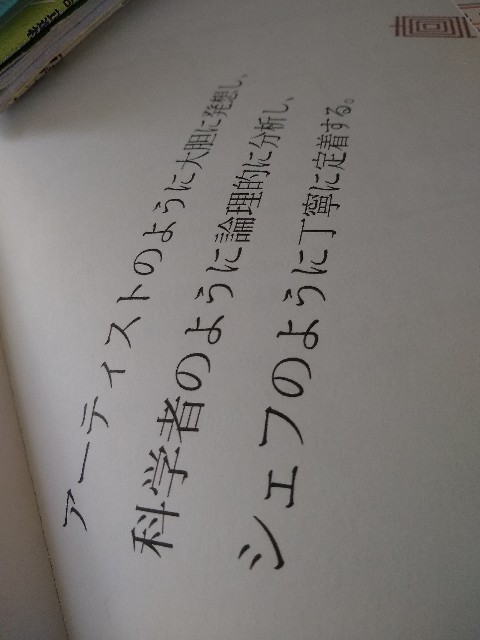 アーティストのように大胆に発想し、
科学者のように論理的に分析し、
シェフのように丁寧に定着する。